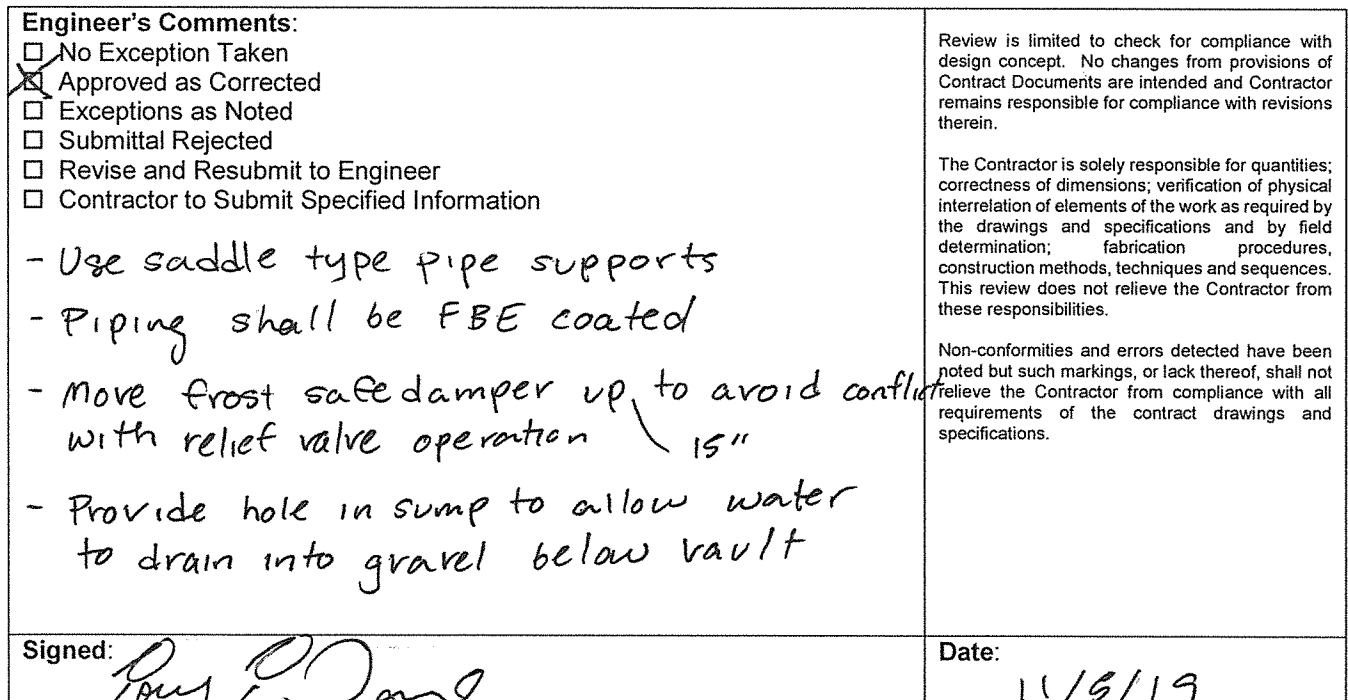 Engineer's Comments:
☐ No Exception Taken
☒ Approved as Corrected
☐ Exceptions as Noted
☐ Submittal Rejected
☐ Revise and Resubmit to Engineer
☐ Contractor to Submit Specified Information
- Use saddle type pipe supports
- Piping shall be FBE coated
- Move frost safe damper up to avoid conflict
with relief valve operation 15"
- Provide hole in sump to allow water
to drain into gravel below vault
Review is limited to check for compliance with
design concept. No changes from provisions of
Contract Documents are intended and Contractor
remains responsible for compliance with revisions
therein.
The Contractor is solely responsible for quantities;
correctness of dimensions; verification of physical
interrelation of elements of the work as required by
the drawings and specifications and by field
determination; fabrication procedures,
construction methods, techniques and sequences.
This review does not relieve the Contractor from
these responsibilities.
Non-conformities and errors detected have been
noted but such markings, or lack thereof, shall not
relieve the Contractor from compliance with all
requirements of the contract drawings and
specifications.
Signed:
Date: